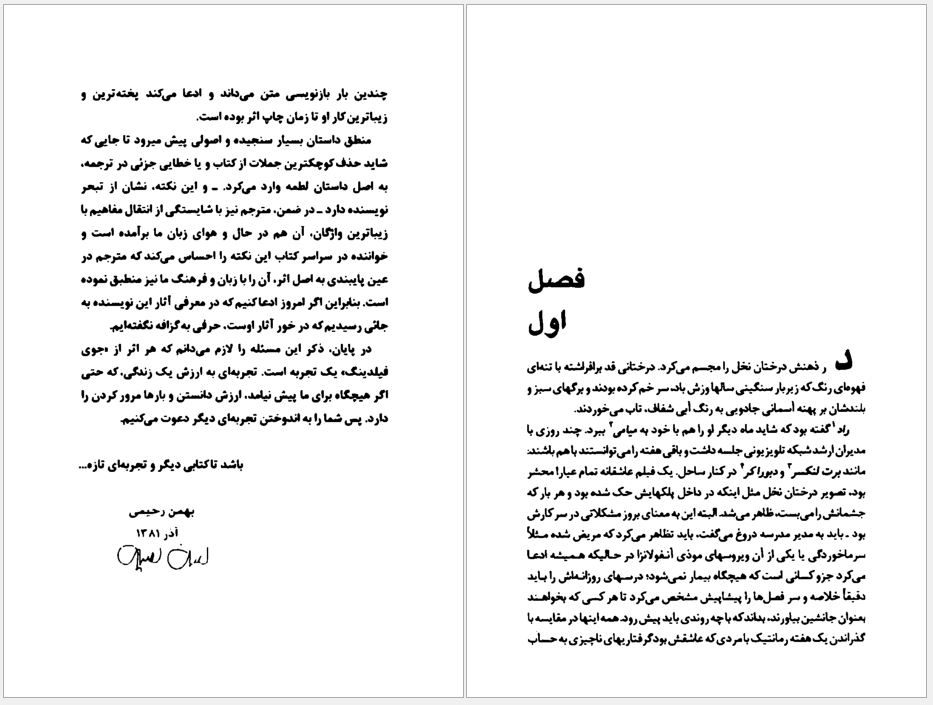 چندین بار بازنویسی متن می‌داند و ادعا می‌کند پخته‌ترین و
زیباترین کار او تا زمان چاپ اثر بوده است.
منطق داستان بسیار سنجیده و اصولی پیش میرود تا جایی که
شاید حذف کوچکترین جملات از کتاب و یا خطایی جزئی در ترجمه،
به اصل داستان لطمه وارد می‌کرد. ـ و این نکته، نشان از تبحر
نویسنده دارد ـ در ضمن، مترجم نیز با شایستگی از انتقال مفاهیم با
زیباترین واژگان، آن هم در حال و هوای زبان ما برآمده است و
خواننده در سراسر کتاب این نکته را احساس می‌کند که مترجم در
عین پایبندی به اصل اثر، آن را با زبان و فرهنگ ما نیز منطبق نموده
است. بنابراین اگر امروز ادعا کنیم که در معرفی آثار این نویسنده به
جائی رسیدیم که در خور آثار اوست، حرفی به گزافه نگفته‌ایم.
در پایان، ذکر این مسئله را لازم می‌دانم که هر اثر از «جوی
فیلدینگ» یک تجربه است. تجربه‌ای به ارزش یک زندگی، که حتی
اگر هیچگاه برای ما پیش نیامد، ارزش دانستن و بارها مرور کردن را
دارد. پس شما را به اندوختن تجربه‌ای دیگر دعوت می‌کنیم.
باشد تا کتابی دیگر و تجربه‌ای تازه...
بهمن رحیمی
آذر ۱۳۸۱
فصل
اول
در ذهنش درختان نخل را مجسم می‌کرد. درختانی قد برافراشته با تنه‌ای
قهوه‌ای رنگ که زیر بار سنگینی سالها وزش باد، سر خم کرده بودند و برگهای سبز و
بلندشان بر پهنه آسمانی جادویی به رنگ آبی شفاف، تاب می‌خوردند.
راد۱ گفته بود که شاید ماه دیگر او را هم با خود به میامی۲ ببرد. چند روزی با
مدیران ارشد شبکه تلویزیونی جلسه داشت و باقی هفته را می‌توانستند با هم باشند:
مانند برت لنکسر۳ و دبورا کر۴ در کنار ساحل. یک فیلم عاشقانه تمام عیار! محشر
بود، تصویر درختان نخل مثل اینکه در داخل پلکهایش حک شده بود و هر بار که
چشمانش را می‌بست، ظاهر می‌شد. البته این به معنای بروز مشکلاتی در سر کارش
بود ـ باید به مدیر مدرسه دروغ می‌گفت، باید تظاهر می‌کرد که مریض شده مثلاً
سرماخوردگی یا یکی از آن ویروسهای موذی آنفولانزا در حالیکه همیشه ادعا
می‌کرد جزو کسانی است که هیچگاه بیمار نمی‌شود؛ درسهای روزانه‌اش را باید
دقیقاً خلاصه و سر فصل‌ها را پیشاپیش مشخص می‌کرد تا هر کسی که بخواهند
بعنوان جانشین بیاورند، بداند که با چه روندی باید پیش رود. همه اینها در مقایسه با
گذراندن یک هفته رمانتیک با مردی که عاشقش بود گرفتاریهای ناچیزی به حساب